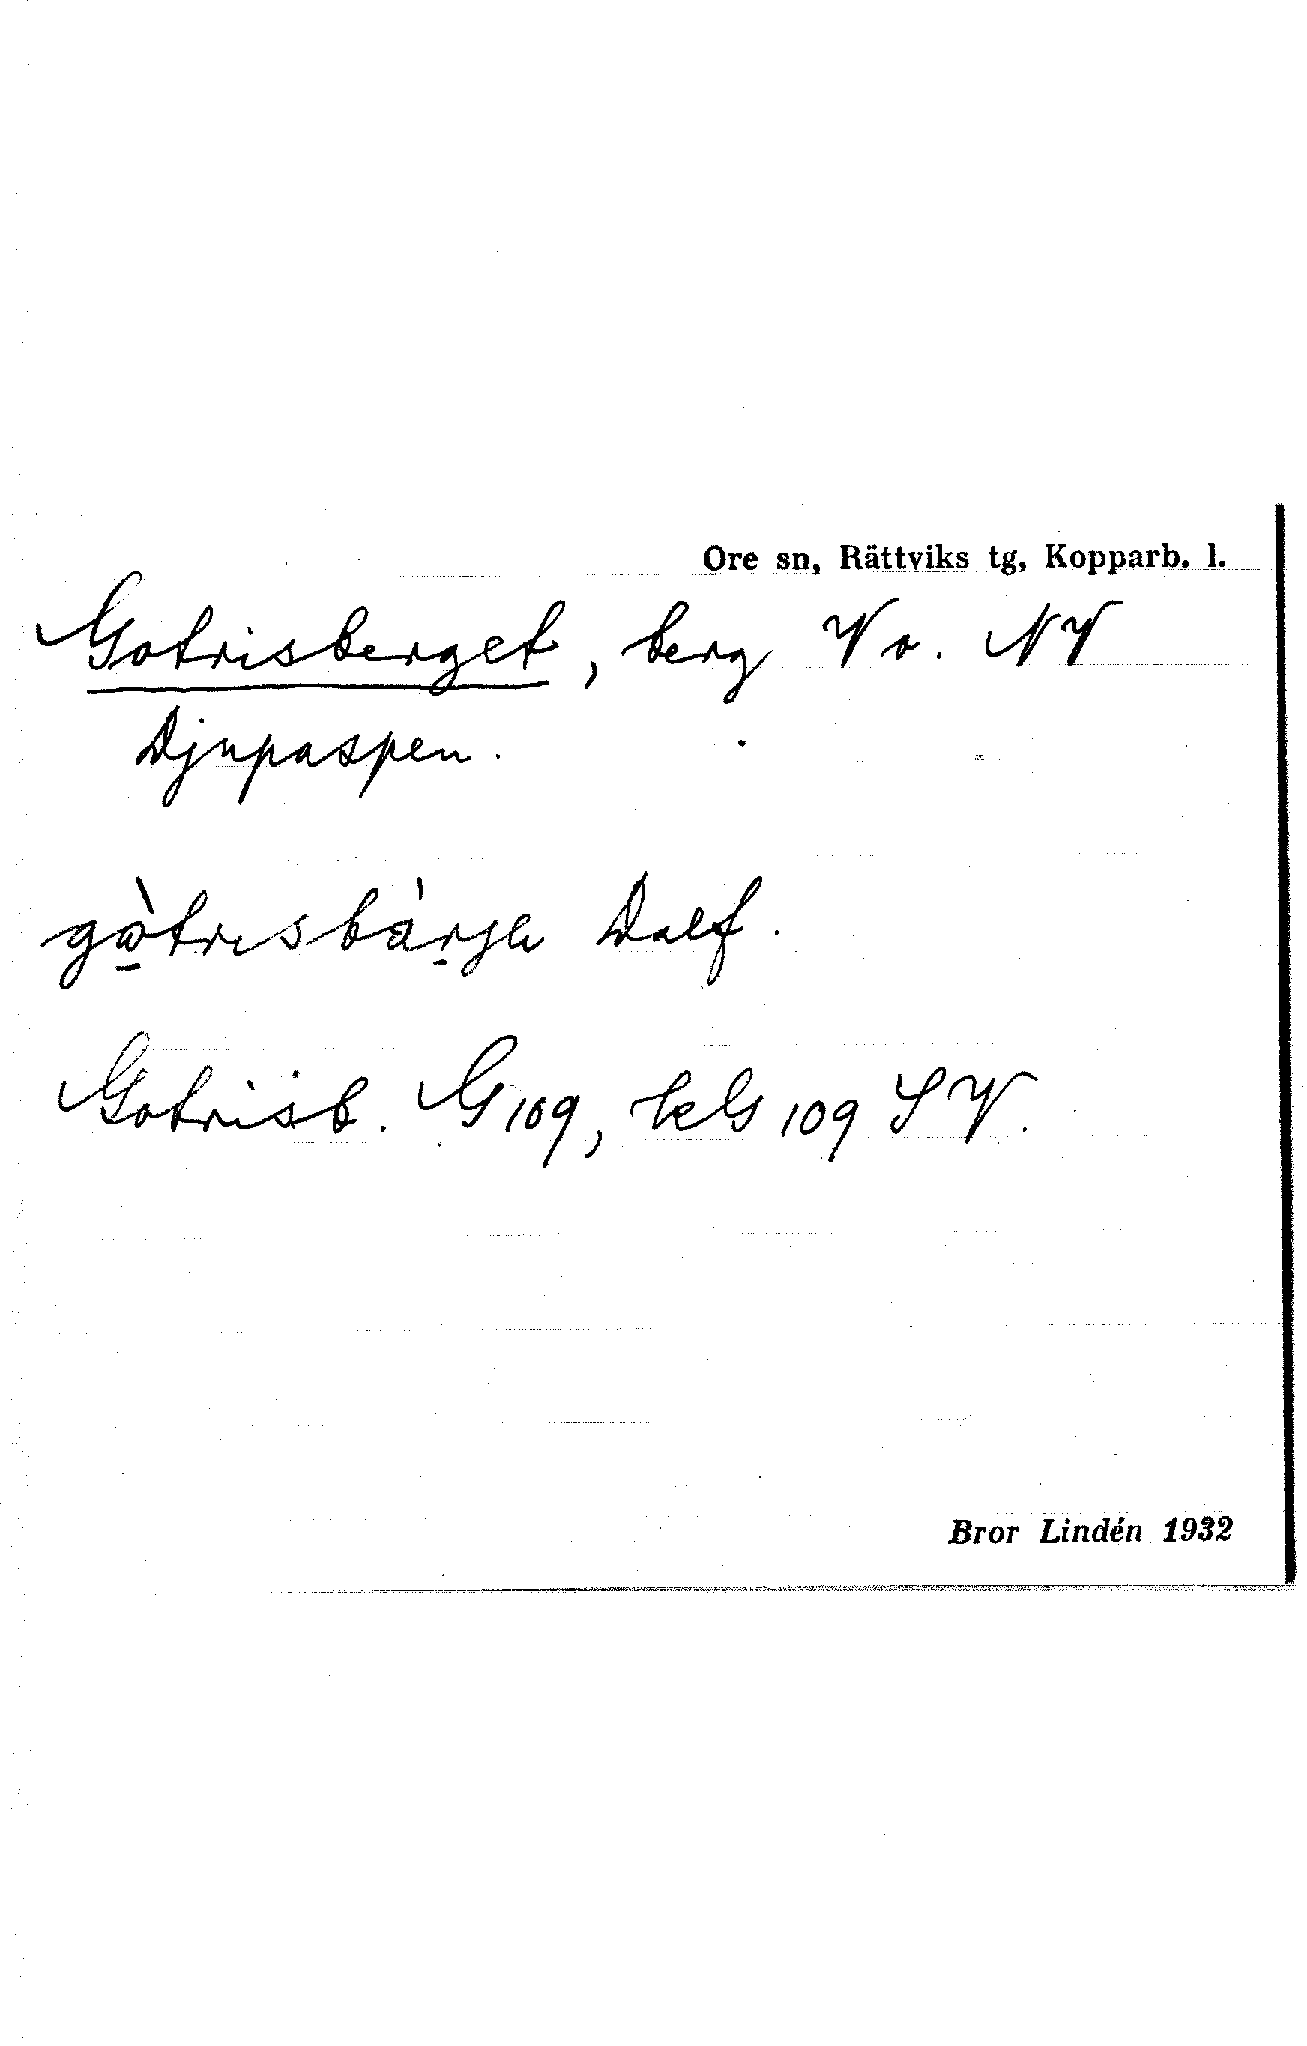 Ore sn, Rättviks tg, Kopparb. l.
Gotrisberget, berg V o. NV
Djupaspen.
gɷ̀trısbàrjļı Dalf.
Gotrisb. G109, kG 109 SV.
Bror Lindén 1932